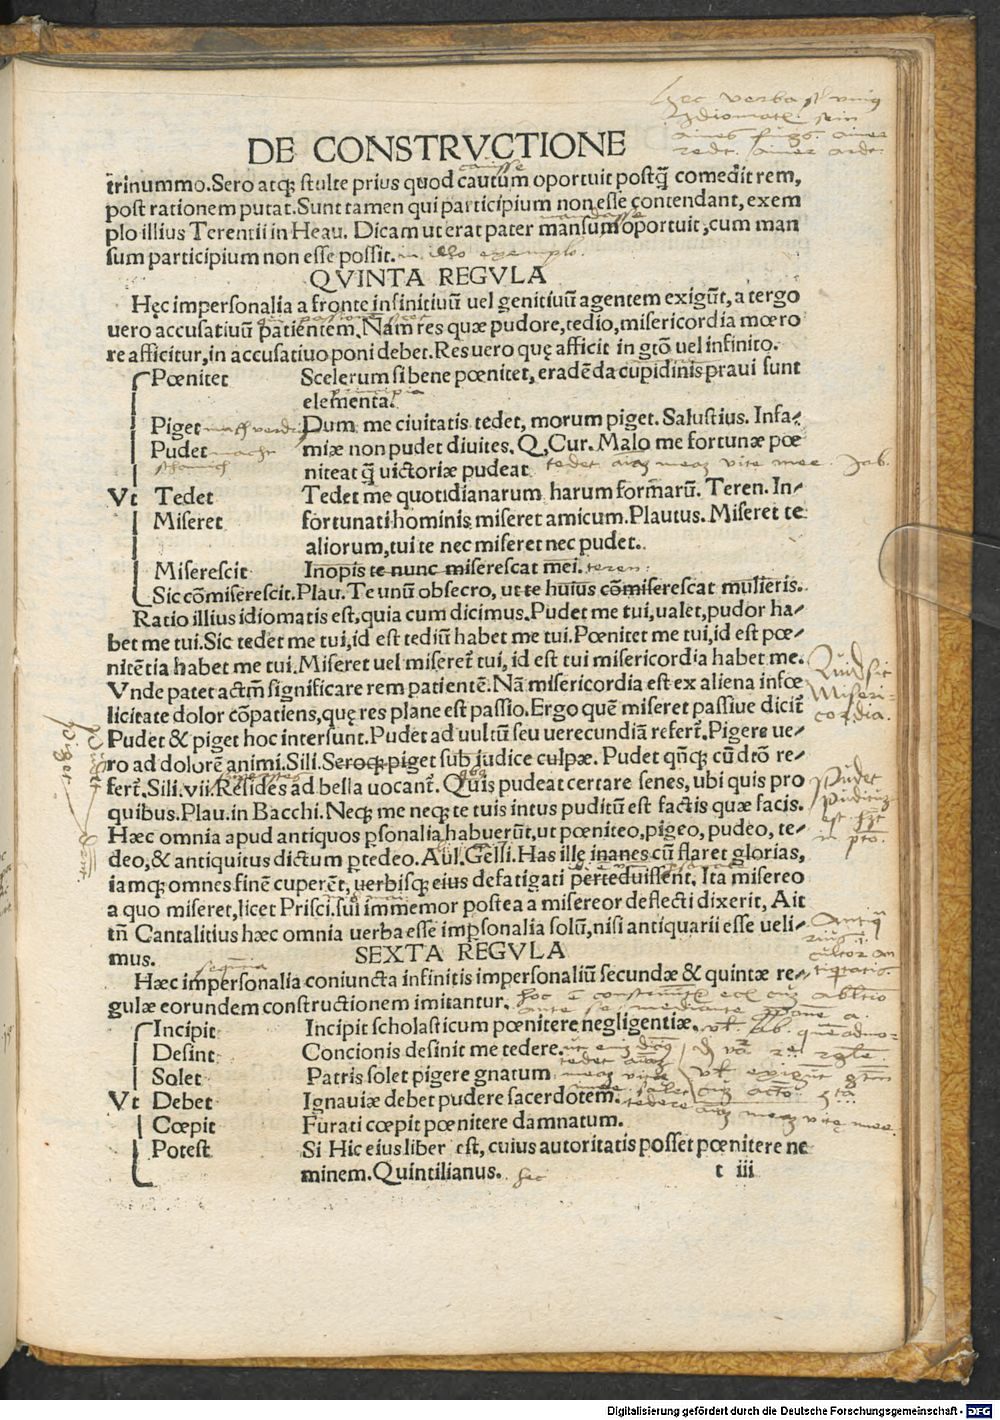 DE CONSTRVCTIONE
trinummo. Sero atq; stulte prius quod cautum oportuit postq̃ comedit rem,
post rationem putat. Sunt tamen qui participium non esse contendant, exem
plo illius Terentii in Heau. Dicam ut erat pater mansum oportuit, cum man
sum participium non esse possit. in illo exemplo.
QVINTA REGVLA
Hęc impersonalia a fronte infinitiuũ uel genitiuũ agentem exigũt, a tergo
uero accusatiuũ patientem. Nam res quæ pudore, tedio, misericordia mœro
re afficitur, in accusatiuo poni debet. Res uero quę afficit in gtõ uel infinito.
Pœnitet Scelerum si bene pœnitet, eradẽda cupidinis praui sunt
elementa.
Piget Dum me ciuitatis tedet, morum piget. Salustius. Infa-
Pudet miæ non pudet diuites. Q. Cur. Malo me fortunæ pœ
niteat q̃ uictoriæ pudeat
Vt Tedet Tedet me quotidianarum harum formarũ. Teren. In-
Miseret fortunati hominis miseret amicum. Plautus. Miseret te
aliorum, tui te nec miseret nec pudet.
Miserescit Inopis te nunc miserescat mei. teren:
Sic cõmiserescit. Plau. Te unũ obsecro, ut te huius cõmiserescat mulieris.
Ratio illius idiomatis est, quia cum dicimus. Pudet me tui, ualet, pudor ha-
bet me tui. Sic tedet me tui, id est tediũ habet me tui. Pœnitet me tui, id est pœ-
nitẽtia habet me tui. Miseret uel miseret̃ tui, id est tui misericordia habet me.
Vnde patet actm̃ significare rem patientẽ. Nã misericordia est ex aliena infœ
licitate dolor cõpatiens, quę res plane est passio. Ergo quẽ miseret passiue dicit̃
Pudet & piget hoc intersunt. Pudet ad uultũ seu uerecundiã refert̃. Pigere ue-
ro ad dolorẽ animi. Sili. Seroq; piget sub iudice culpæ. Pudet qñq; cũ dtõ re-
fert̃. Sili. vii. Resides ad bella uocant̃. Quis pudeat certare senes, ubi quis pro
quibus. Plau. in Bacchi. Neq; me neq; te tuis intus puditũ est factis quæ facis.
Hæc omnia apud antiquos psonalia habuerũt, ut pœniteo, pigeo, pudeo, te-
deo, & antiquitus dictum p tedeo. Aul. Gelli. Has ille inanes cũ flaret glorias,
iamq; omnes finẽ cuperẽt, uerbisq; eius defatigati pertedũissent. Ita misereo
a quo miseret, licet Prisci. sui immemor postea a misereor deflecti dixerit, Ait
tñ Cantalitius hæc omnia uerba esse impsonalia solũ, nisi antiquarii esse ueli-
mus.
SEXTA REGVLA
Hæc impersonalia coniuncta infinitis impersonaliũ secundæ & quintæ re-
gulæ eorundem constructionem imitantur.
Incipit Incipit scholasticum pœnitere negligentiæ.
Desinit Concionis desinit me tedere.
Solet Patris solet pigere gnatum
Vt Debet Ignauiæ debet pudere sacerdotem.
Cœpit Furati cœpit pœnitere damnatum.
Potest Si Hic eius liber est, cuius autoritatis posset pœnitere ne
minem. Quintilianus. t iii
Quid sit
Miseri-
cordia.
Digitalisierung gefördert durch die Deutsche Forschungsgemeinschaft - DFG